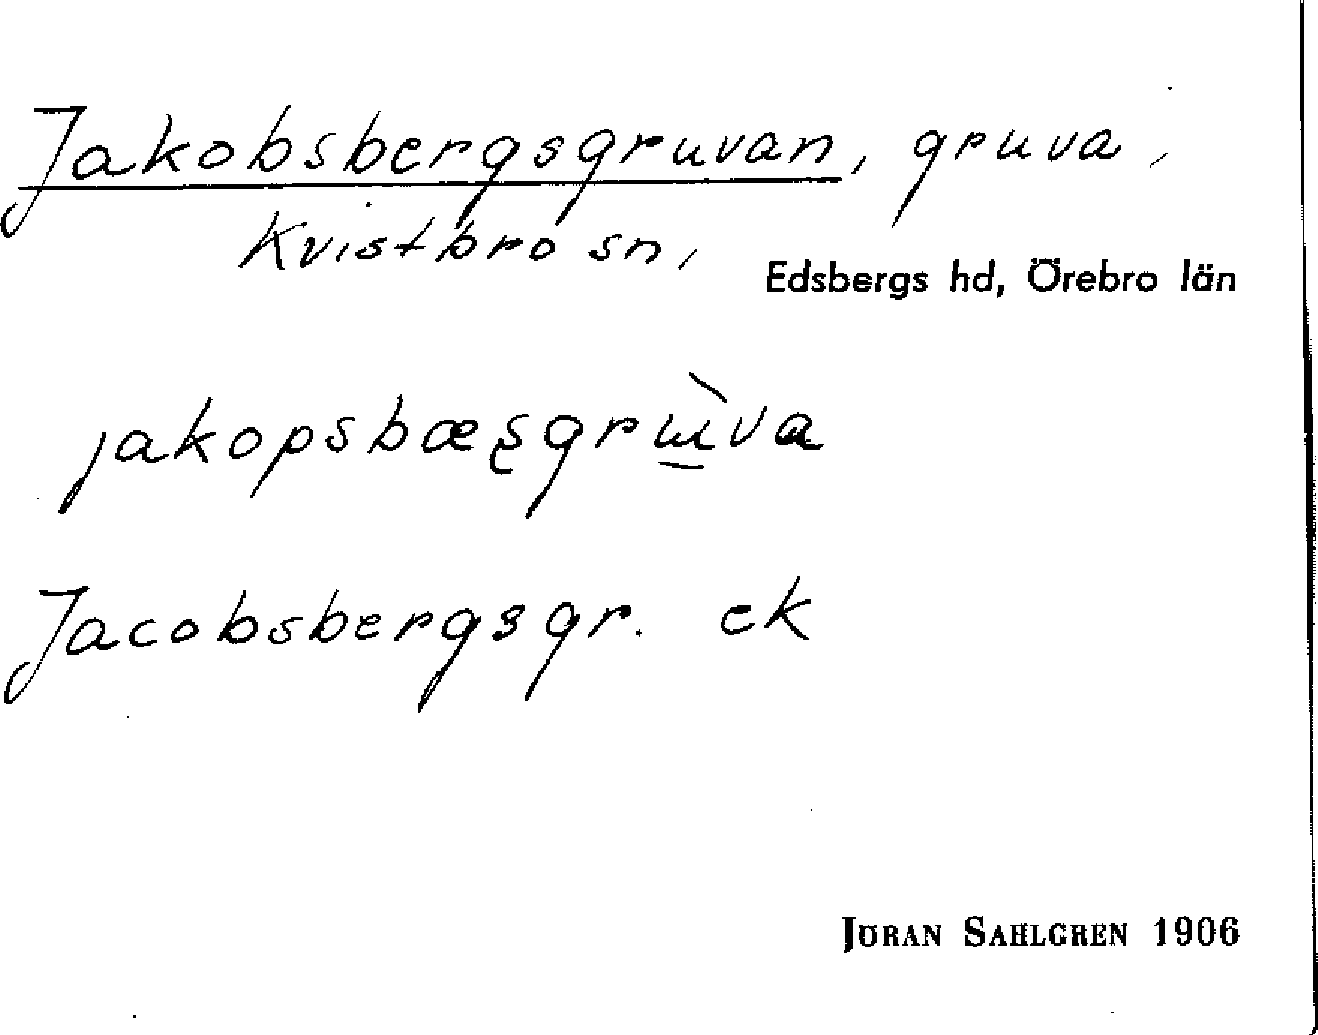 Jakobsbergsgruvan, gruva,
Kvistbro sn,
Edsbergs hd, Örebro län
jakopsbæʂgrɯ̀va
Jacobsbergsgr. ek
JÖRAN SAHLGREN 1906